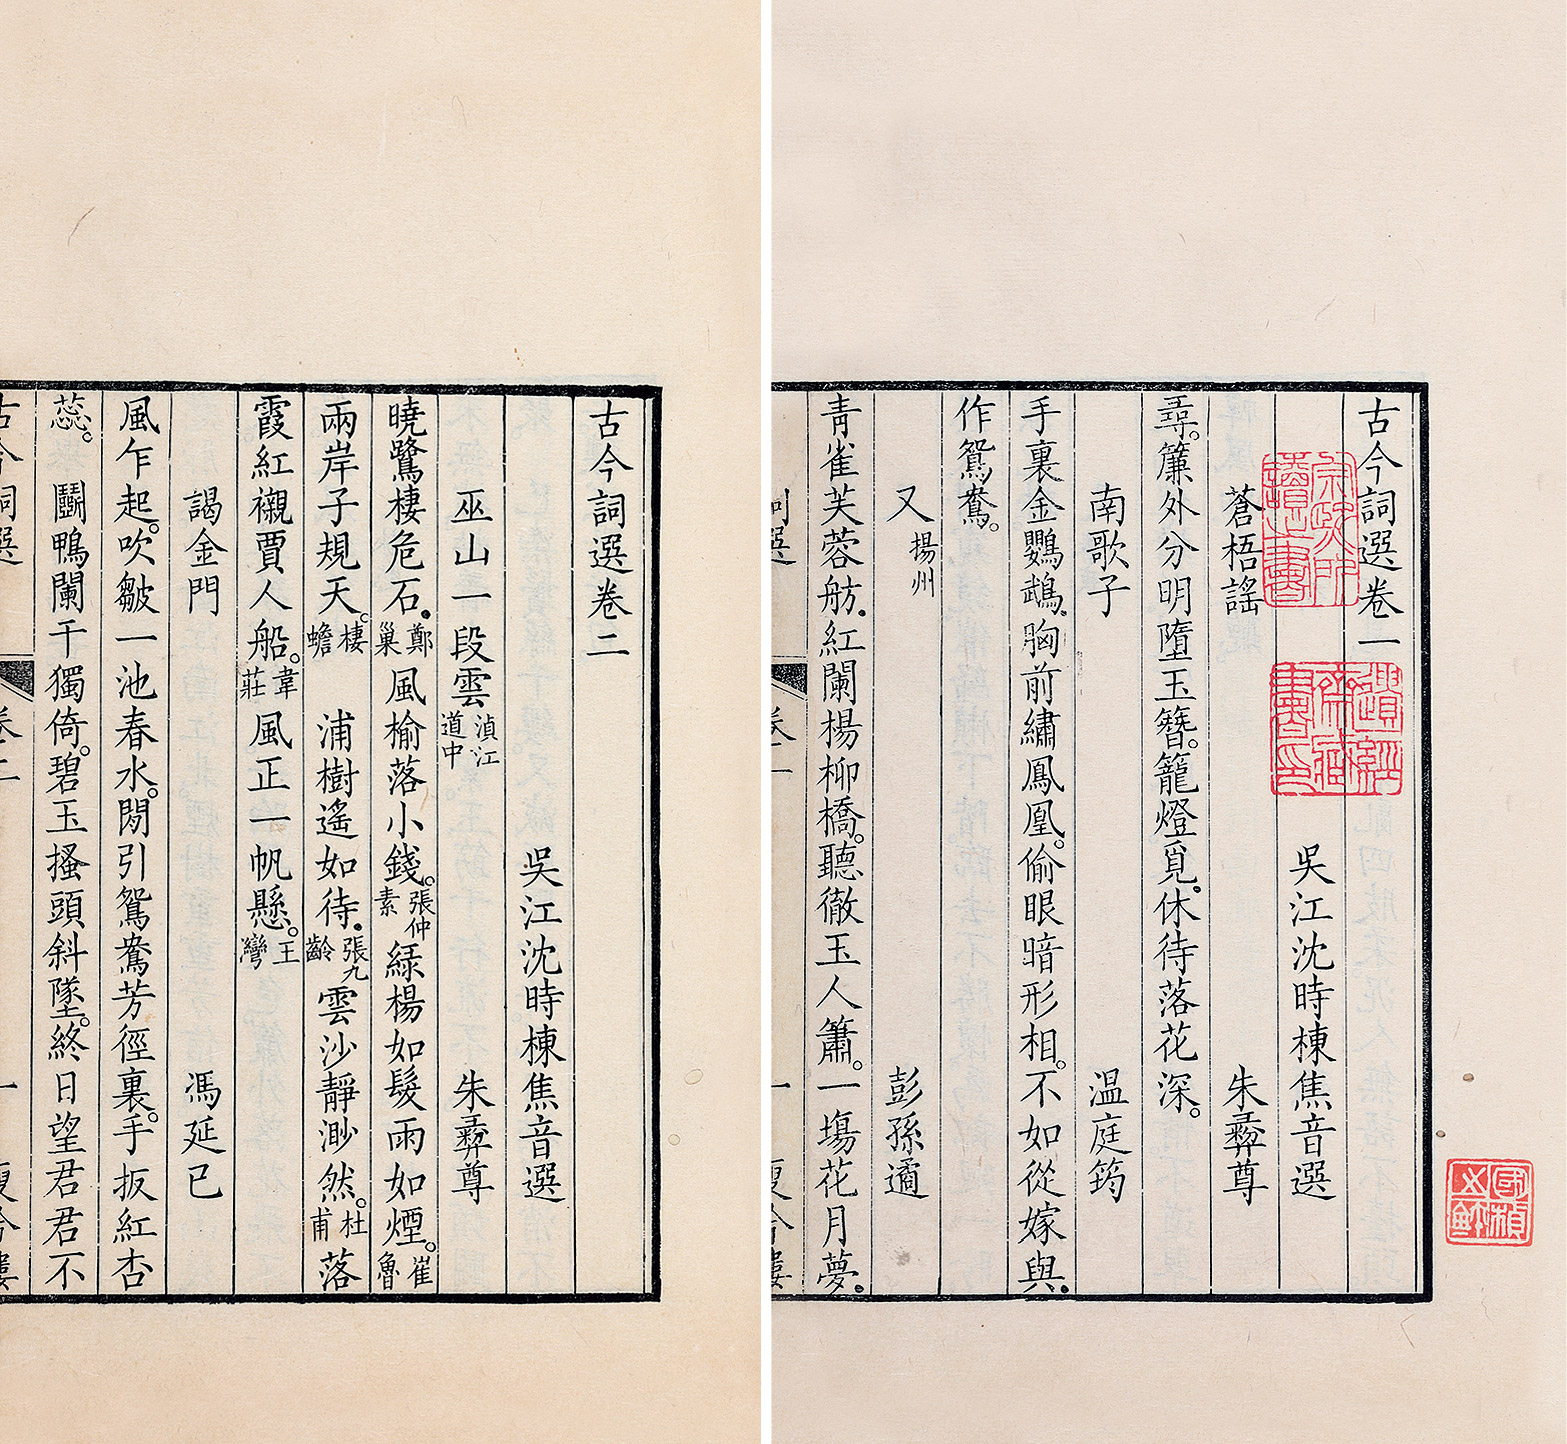 古今詞選卷一
吳江沈時棟焦音選
蒼梧謠　朱彝尊
尋。簾外分明墮玉簪。籠燈覓。休待落花深。
南歌子　溫庭筠
手裏金鸚鵡。胸前繡鳳凰。偷眼暗形相。不如從嫁與。
作鴛鴦。
又揚州　彭孫遹
青雀芙蓉舫。紅闌楊柳橋。聽徹玉人簫。一塲花月夢。
國楨
古今詞選卷二
吳江沈時棟焦音選
巫山一段雲滇江道中　朱彝尊
曉鷺棲危石。鄭巢風榆落小錢。張仲素綠楊如髮雨如煙。崔魯
兩岸子規天。棲蟾　浦樹遙如待。張九齡雲沙靜渺然。杜甫落
霞紅襯賈人船。韋莊風正一帆懸。王灣
謁金門　馮延巳
風乍起。吹皺一池春水。閒引鴛鴦芳徑裏。手挼紅杏
蕊。　鬬鴨闌干獨倚。碧玉搔頭斜墜。終日望君君不
古今詞選　卷二　一　瘦吟樓